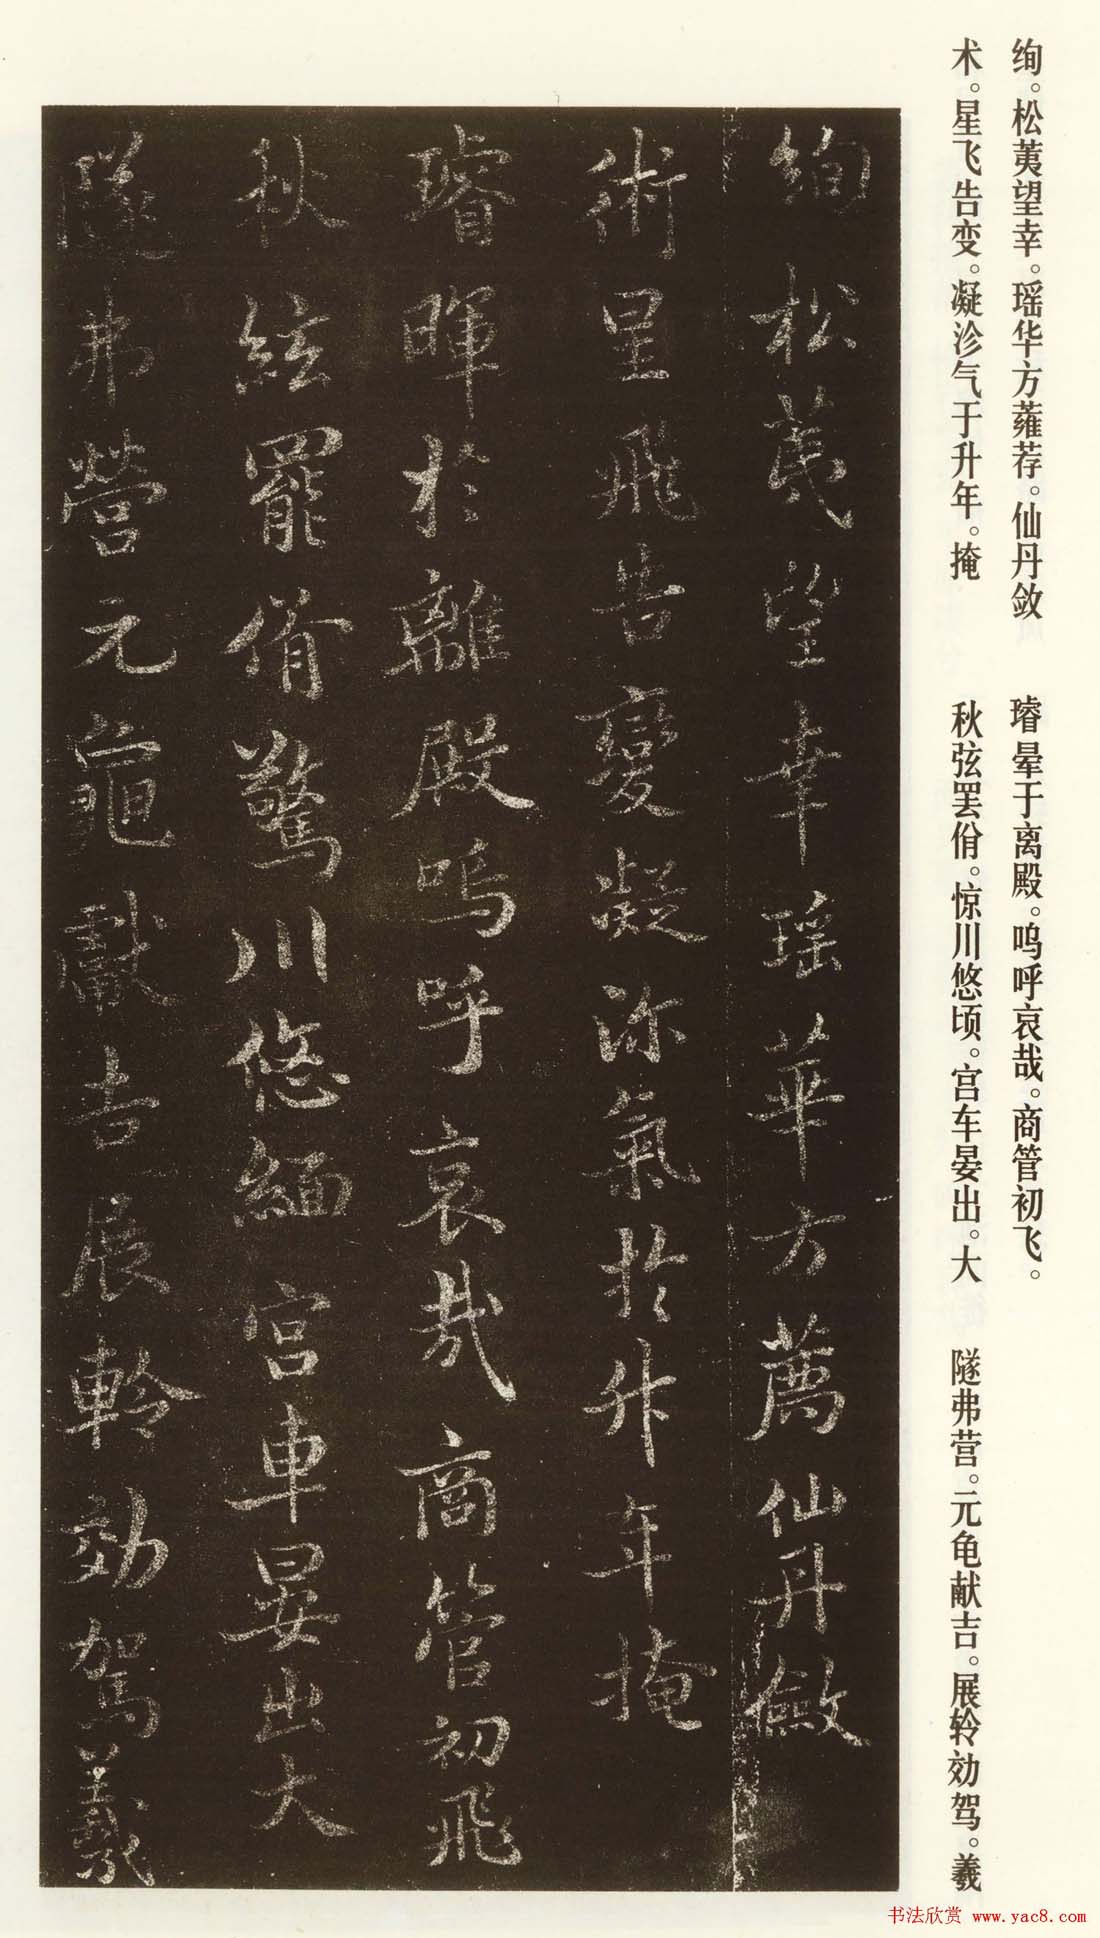 绚。松荑望幸。瑶华方蕹荐。仙丹敛
术。星飞告变。凝沴气于升年。掩
璿晕于离殿。呜呼哀哉。商管初飞。
秋弦罢佾。惊川悠顷。宫车晏出。大
隧弗营。元龟献吉。展轸効驾。羲
絢松荑望幸瑶華方薦仙丹斂
術星飛告變凝沴氣於升年掩
璿暉於離殿嗚呼哀哉商管初飛
秋絃罷佾驚川悠緬宫車晏出大
隧弗營元龜獻吉展軨効駕羲
书法欣赏 www.yac8.com